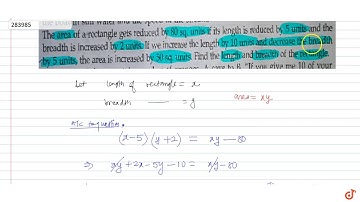 283985
The area of a rectangle gets reduced by 80 sq. units if its length is reduced by 5 units and the
breadth is increased by 2 units. If we increase the length by 10 units and decrease the breadth
by 5 units, the area is increased by 50 sq. units. Find the length and breadth of the rectangle.
Let length of rectangle = x
breadth — = y
area = xy
A/c to question.
(x-5)(y+2) = xy — 80
⇒ xy + 2x - 5y - 10 = xy - 80